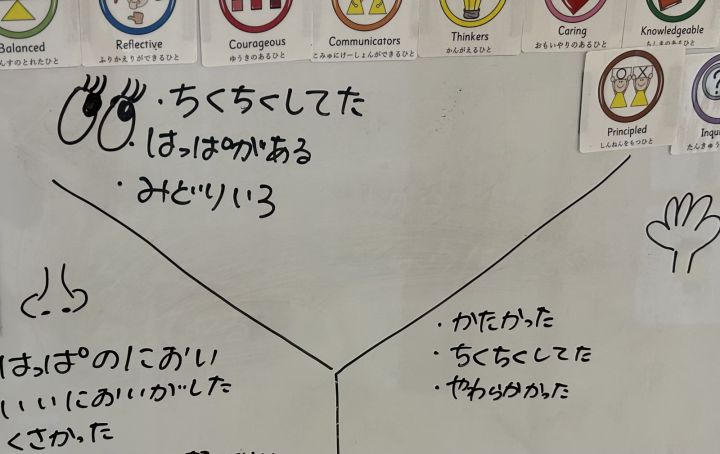 Balanced
Reflective
ふりかえりができるひと
Courageous
ゆうきのあるひと
Communicators
こみゅにけーしょんができるひと
Thinkers
かんがえるひと
Caring
おもいやりのあるひと
Knowledgeable
Principled
しんねんをもつひと
・ちくちくしてた
・はっぱがある
・みどりいろ
はっぱのにおい
いいにおいがした
くさかった
・かたかった
・ちくちくしてた
・やわらかかった